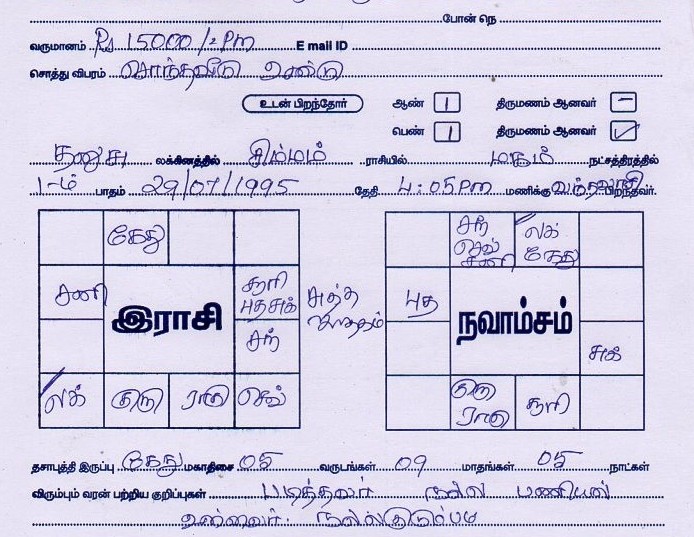 போன் நெ
வருமானம் Rs 15000/-Pm E mail ID
சொத்து விபரம் சொந்தவீடு உண்டு
உடன் பிறந்தோர் ஆண் 1 திருமணம் ஆனவர் -
பெண் 1 திருமணம் ஆனவர் ✓
தனுசு லக்கினத்தில் சிம்மம் ராசியில் மகம் நட்சத்திரத்தில்
1-ம் பாதம் 29/07/1995 தேதி 4:05 PM மணிக்கு வந்தவாசி பிறந்தவர்.
கேது
சனி
சூரி
புத சுக்
சந்
இராசி
லக் குரு ராகு செவ்
சுத்த
ஜாதகம்
சந்
செவ்
சனி
லக்
கேது
புத
நவாம்சம்
சுக்
குரு
ராகு
சூரி
தசாபுத்தி இருப்பு கேது மகாதிசை 05 வருடங்கள் 09 மாதங்கள் 05 நாட்கள்
விரும்பும் வரன் பற்றிய குறிப்புகள் படித்தவர் நல்ல பணியில்
உள்ளவர். நல்லகுடும்பம்